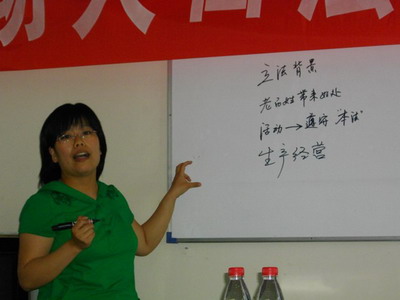 立法背景
老百姓带来好处
活动→遵守"本法"
生产经营